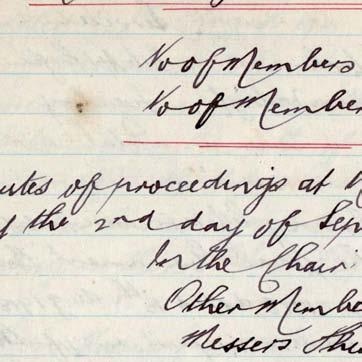 No of Members
No of Member
utes of proceedings at
the 2nd day of Sep
In the Chair
Other Membe
Messers